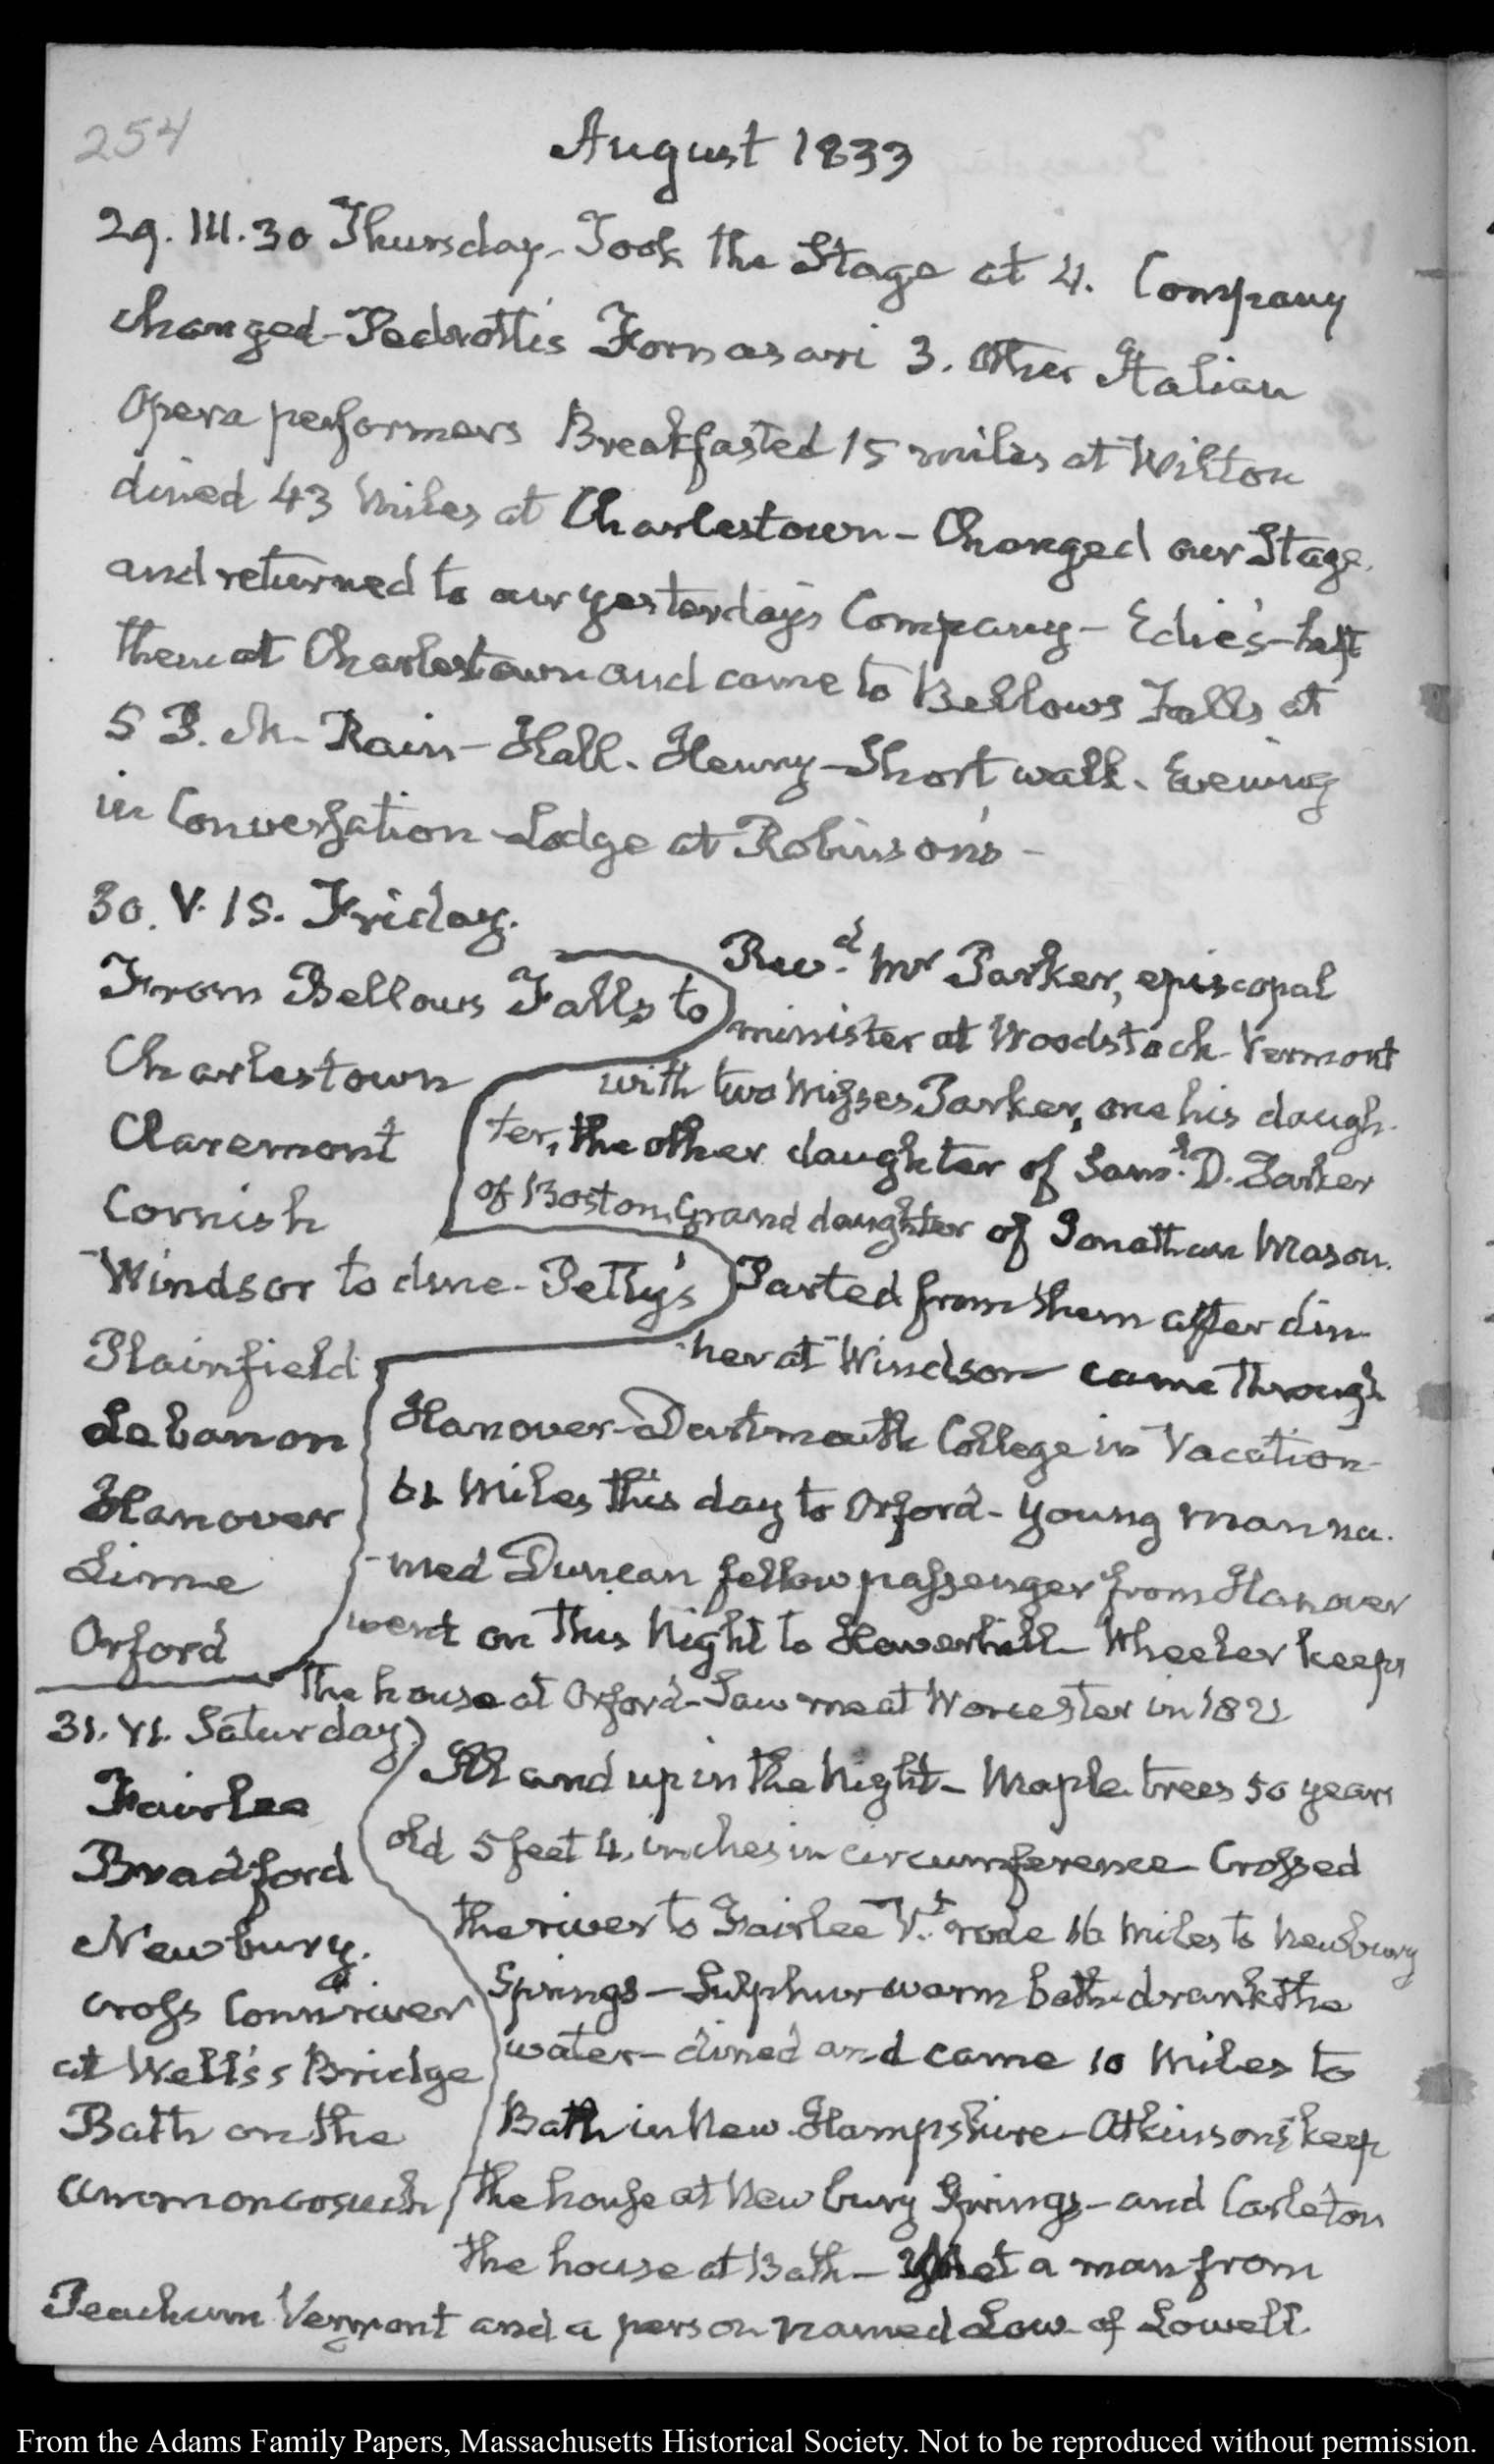 254
August 1833
29. III.30 Thursday. Took the Stage at 4. Company
changed - Pedrotti's Fornasari 3. other Italian
Opera performers Breakfasted 15 miles at Wilton
dined 43 miles at Charlestown - Changed our Stage
and returned to our yesterday's Company - Edie's - left
them at Charlestown and came to Bellows Falls at
5 P.M. Rain - Hall. Henry - Short walk. Evening
in Conversation - Lodge at Robinson's -
30. V. 15. Friday.
From Bellows Falls to
Charlestown
Claremont
Cornish
Windsor to dine - Petty's
Plainfield
Lebanon
Hanover
Lime
Orford
Revd. Mr Parker, episcopal
minister at Woodstock Vermont
with two Misses Parker, one his daugh-
ter, the other daughter of Saml. D. Parker
of Boston, Grand daughter of Jonathan Mason.
Parted from them after din-
ner at Windsor came through
Hanover - Dartmouth College in Vacation -
61 Miles this day to Orford - Young man na-
-med Duncan fellow passenger from Hanover
went on this Night to Haverhill - Wheeler keeps
the house at Orford - Saw me at Worcester in 1822
31. VI. Saturday.
Fairlee
Bradford
Newbury.
cross Conn river
at Wells's Bridge
Bath on the
Ammonoosuch
Ill and up in the Night - Maple trees 50 years
old 5 feet 4. inches in circumference - Crossed
the river to Fairlee Vt. rode 16 Miles to Newbury
Springs - Sulphur warm bath - drank the
water - dined and came 10 Miles to
Bath in New Hampshire - Atkinson's keep
the house at Newbury Springs - and Carleton
the house at Bath - Met a man from
Peachum Vermont and a person named Law of Lowell.
From the Adams Family Papers, Massachusetts Historical Society. Not to be reproduced without permission.